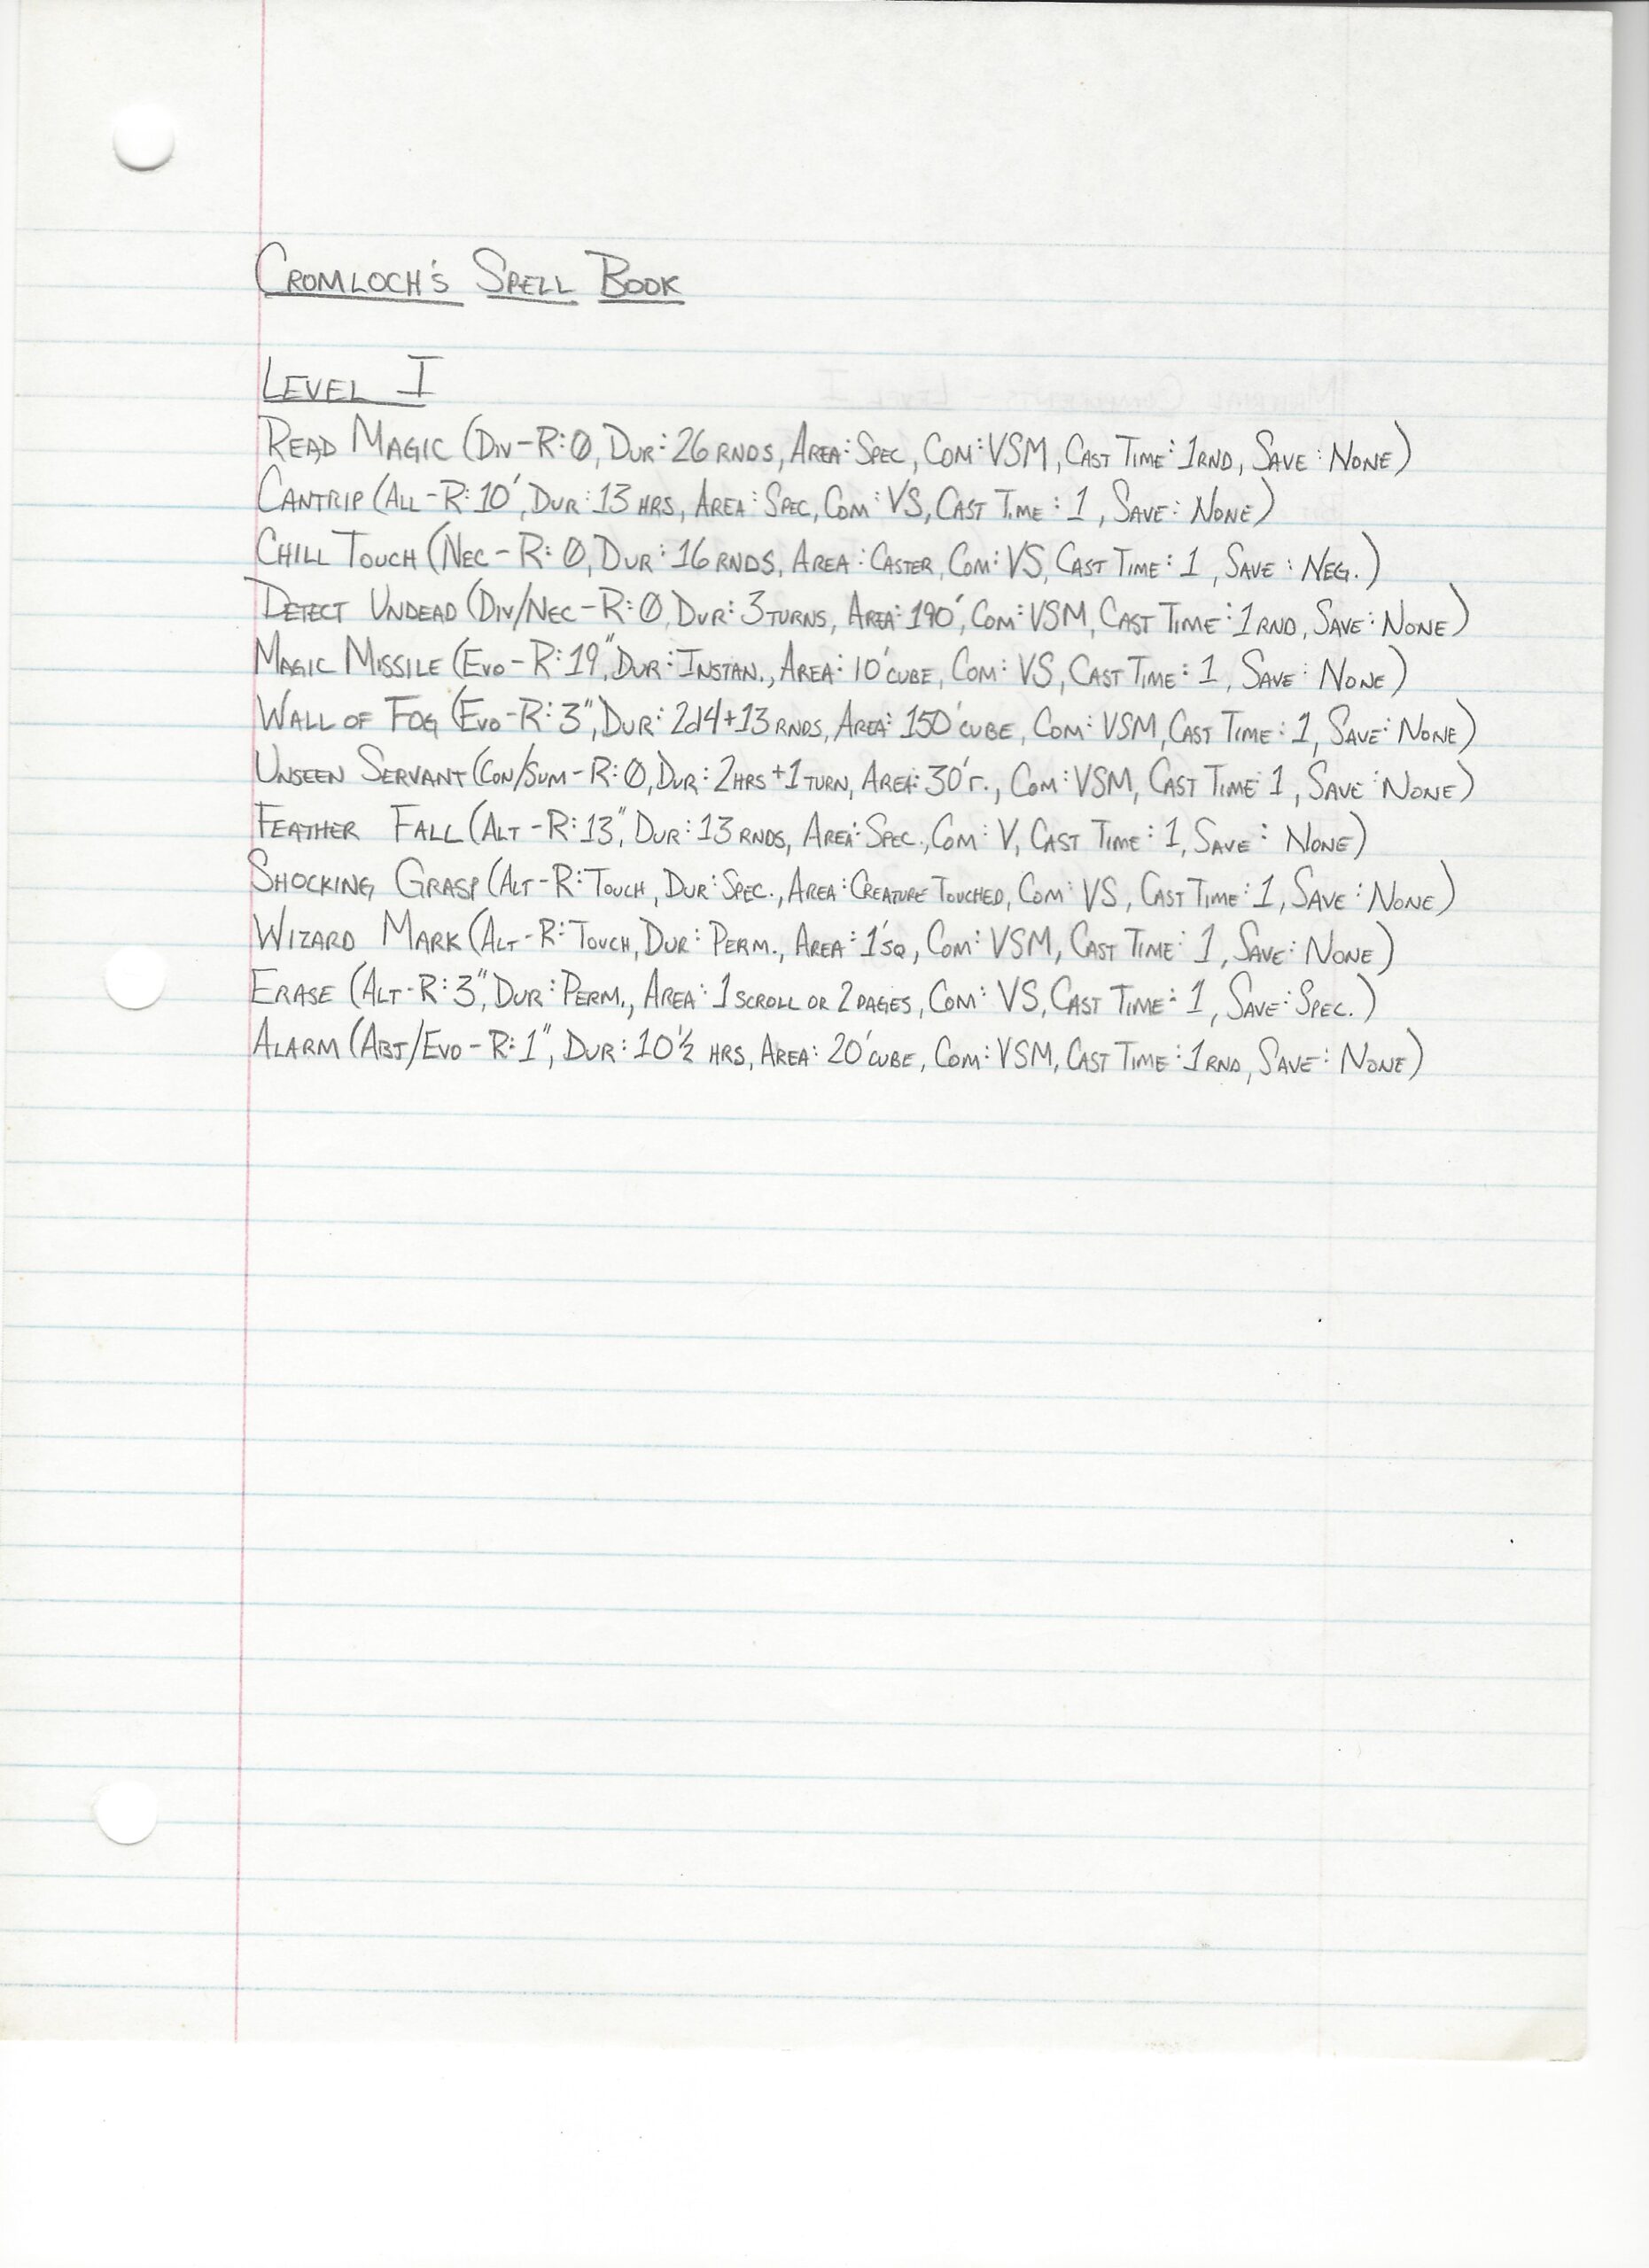 Cromloch's Spell Book
Level I
Read Magic (Div-R:0, Dur:26 rnds, Area:Spec, Com:VSM, Cast Time:1rnd, Save:None)
Cantrip (All-R:10', Dur:13 hrs, Area:Spec, Com:VS, Cast Time:1, Save:None)
Chill Touch (Nec-R:0, Dur:16 rnds, Area:Caster, Com:VS, Cast Time:1, Save:Neg.)
Detect Undead (Div/Nec-R:0, Dur:3 turns, Area:190', Com:VSM, Cast Time:1rnd, Save:None)
Magic Missile (Evo-R:19", Dur:Instan., Area:10' cube, Com:VS, Cast Time:1, Save:None)
Wall of Fog (Evo-R:3", Dur:2d4+13 rnds, Area:150' cube, Com:VSM, Cast Time:1, Save:None)
Unseen Servant (Con/Sum-R:0, Dur:2hrs+1 turn, Area:30'r., Com:VSM, Cast Time 1, Save:None)
Feather Fall (Alt-R:13", Dur:13 rnds, Area:Spec., Com:V, Cast Time:1, Save:None)
Shocking Grasp (Alt-R:Touch, Dur:Spec., Area:Creature Touched, Com:VS, Cast Time:1, Save:None)
Wizard Mark (Alt-R:Touch, Dur:Perm., Area:1'sq, Com:VSM, Cast Time:1, Save:None)
Erase (Alt-R:3", Dur:Perm., Area:1 scroll or 2 pages, Com:VS, Cast Time:1, Save:Spec.)
Alarm (Abj/Evo-R:1", Dur:10½ hrs, Area:20' cube, Com:VSM, Cast Time:1rnd, Save:None)